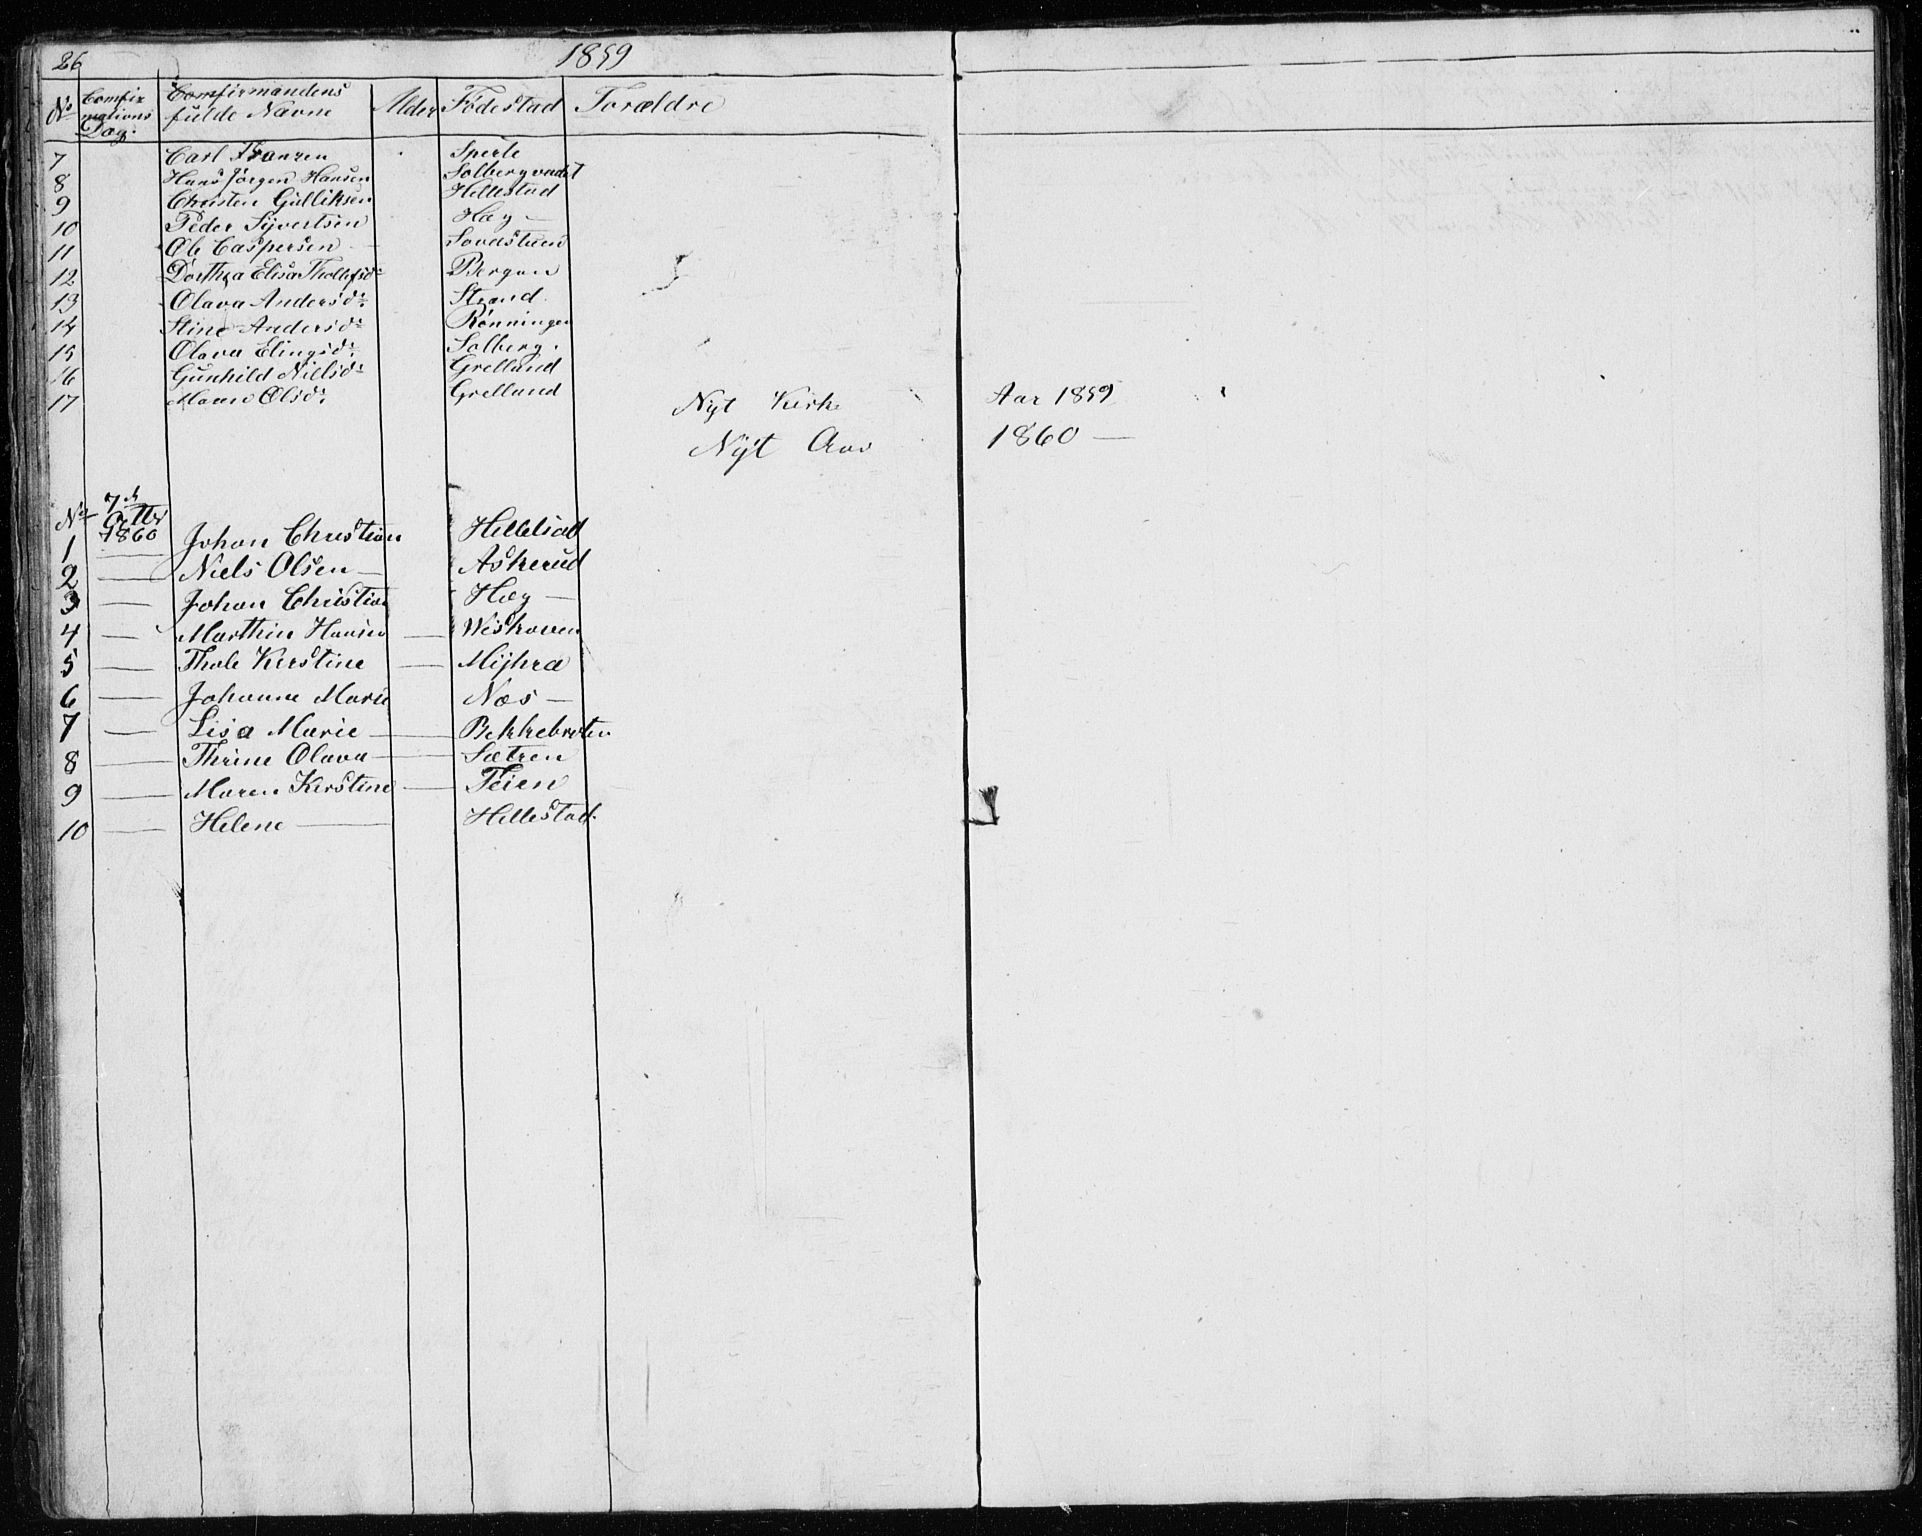 26 1859
No Comfir mations Dag. Comfirmandens fulde Navne Alder Födestad Forældre
7 Carl Franzen Sperle
8 Hans Jörgen Hansen Solbergvedet
9 Christen Gulliksen Hellestad
10 Peder Syvertsen Hæg —
11 Ole Caspersen
12 Dorthea Elisa Thollefsdr Bergan
13 Olava Andersdr Strand.
14 Stine Andersdr Rönningen
15 Olava Elingsdr Solberg.
16 Gunhild Nielsdr Grelland
17 Maren Olsdr Grelland
Nyt Kirke Aar 1859
Nyt Aar 1860 —
No 7d Octbr 1860
1 — Johan Christian Hellestad
2 — Niels Olsen — Askerud
3 — Johan Christian Hæg —
4 — Marthin Hansen — Weskoven
5 — Thale Kirstine — Myhra
6 — Johanne Marie Næs —
7 — Lisa Marie — Bekkebroten
8 — Thrine Olava — Sætren
9 — Maren Kirstine — Teien
10 — Helene — Hellestad.